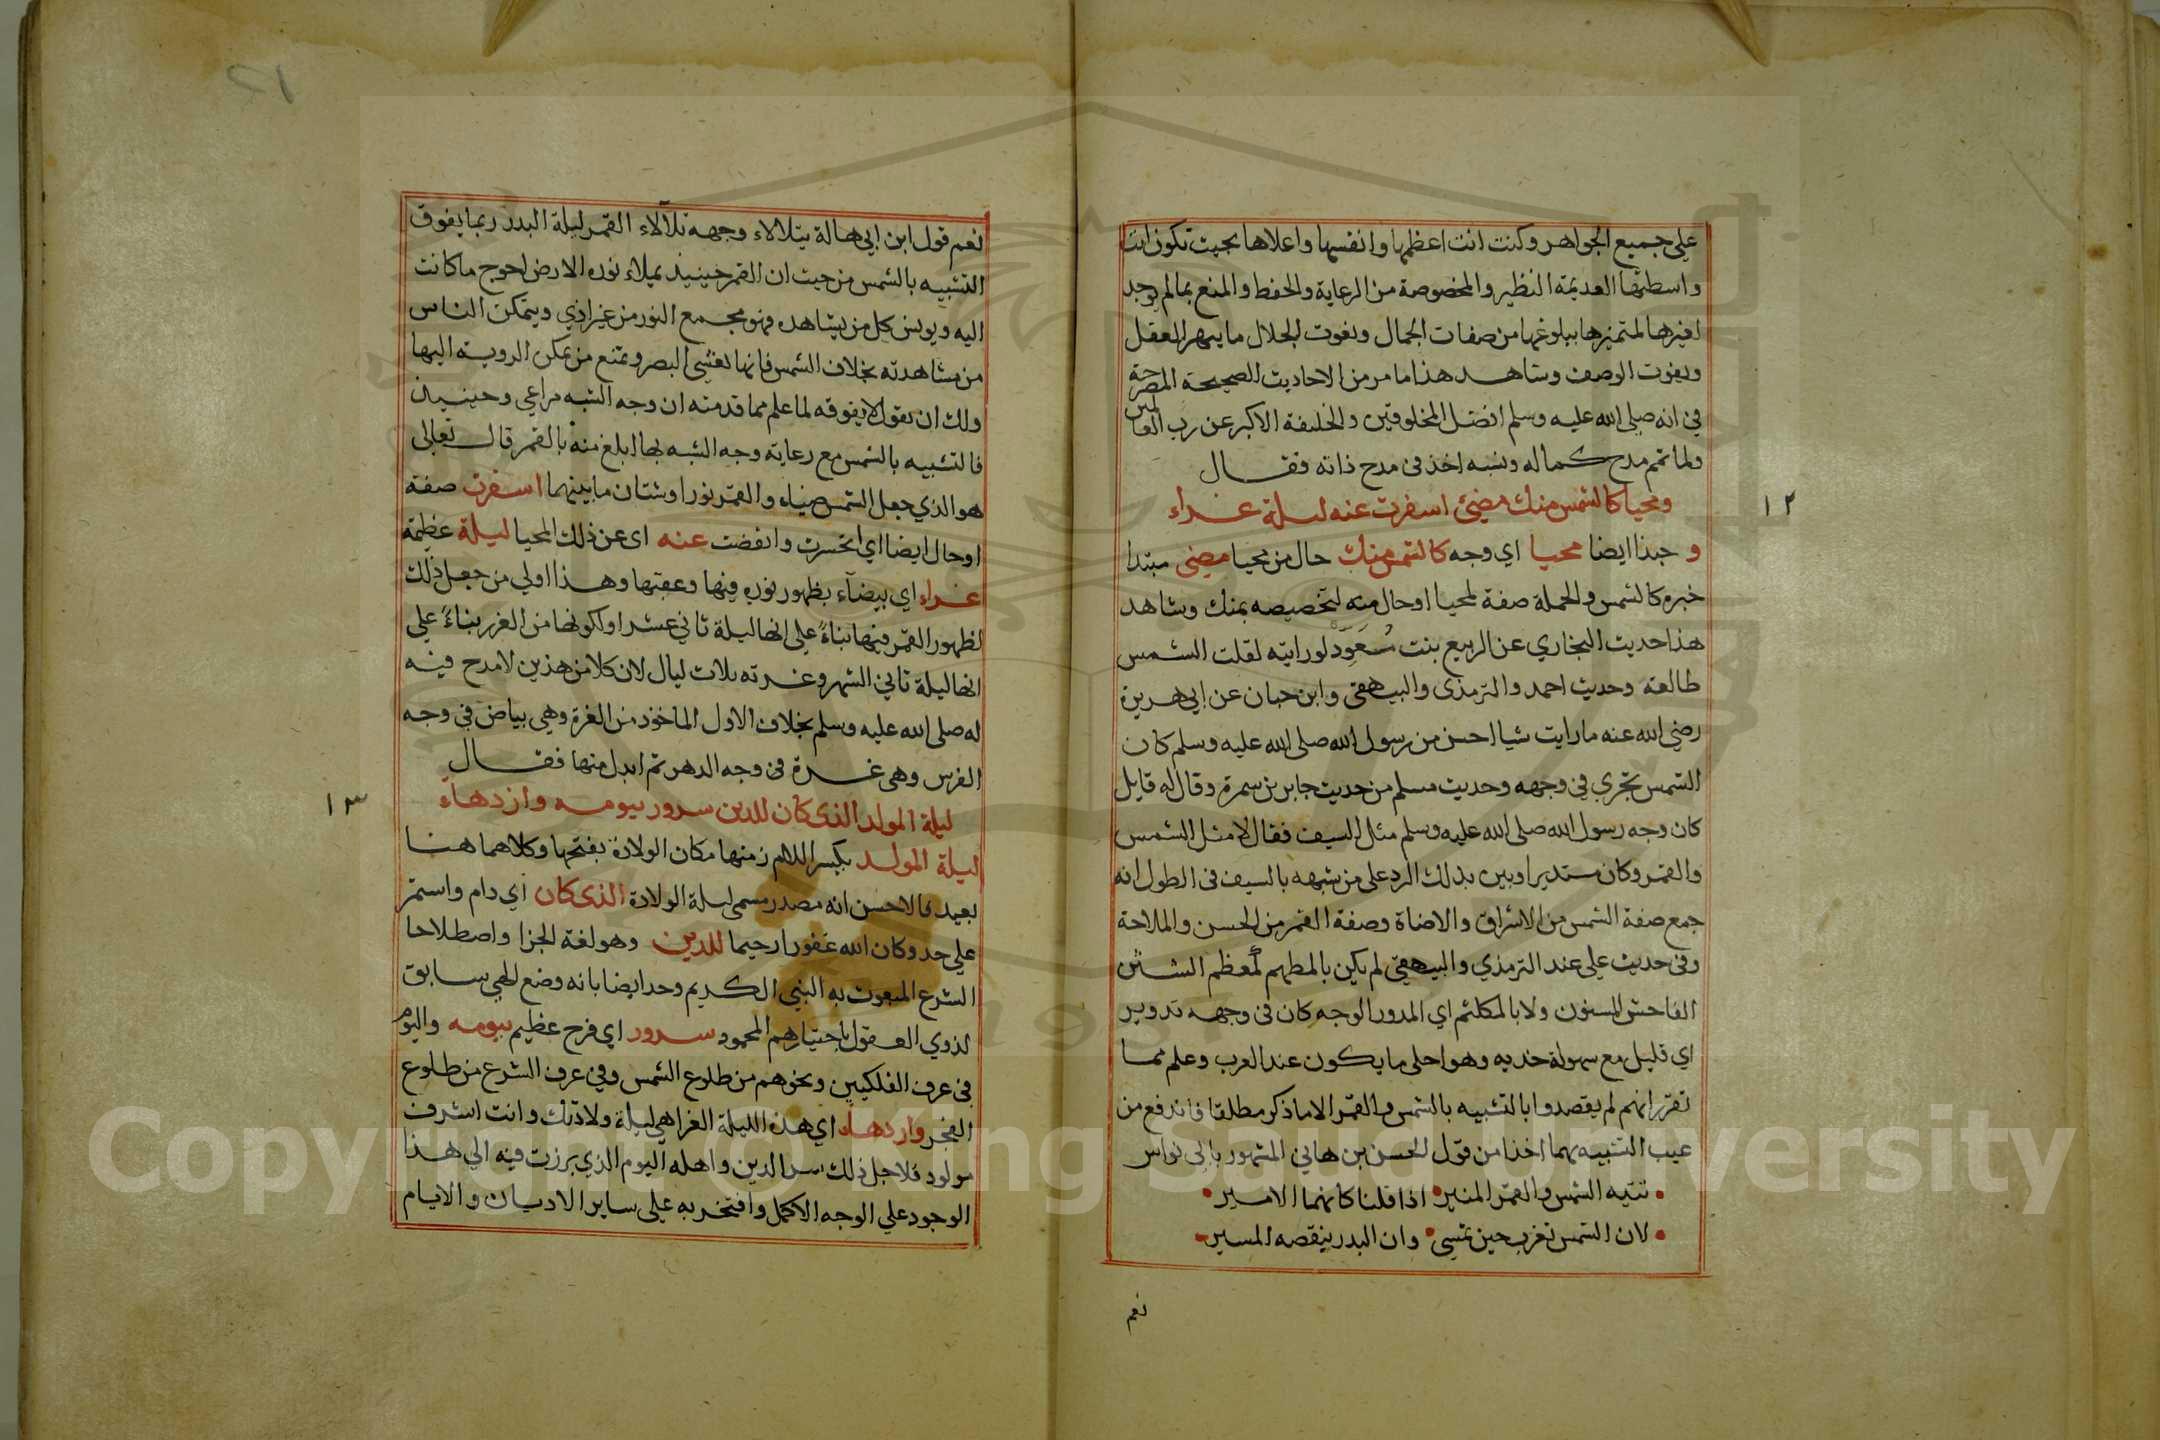 على جميع الجواهر وكنت انت اعظمها وانفسها واعلاها بحيث تكون انت
واسطتها العديمة النظير والمخصوصة من الرعاية والحفظ والمنع بما لم يوجد
لغيرها لتميزها ببلوغها من صفات الجمال ونعوت الجلال ما يبهر العقل
ويفوت الوصف وشاهد هذا ما مر من الاحاديث الصحيحة المصرحة
في انه صلى الله عليه وسلم افضل المخلوقين والخليفة الاكبر عن رب العالمين
ولما تمم مدح كماله ونسبه اخذ في مدح ذاته فقال
ومحيا كالشمس منك مضيئ اسفرت عنه ليلة غراء
١٢
و حبذا ايضا محيا اي وجه كالشمس منك حال من محيا مضي مبتدا
خبره كالشمس والجملة صفة لمحيا او حال منه لتخصيصه بمنك وشاهد
هذا حديث البخاري عن الربيع بنت مسعود لو رايته لقلت الشمس
طالعة وحديث احمد والترمذي والبيهقي وابن حبان عن ابي هريرة
رضي الله عنه ما رايت شيا احسن من رسول الله صلى الله عليه وسلم كان
الشمس تجري في وجهه وحديث مسلم من حديث جابر بن سمرة وقال له قايل
كان وجه رسول الله صلى الله عليه وسلم مثل السيف فقال لا مثل الشمس
والقمر وكان مستديرا وبين بذلك الرد على من شبهه بالسيف في الطول انه
جمع صفة الشمس من الاشراق والاضاة وصفة القمر من الحسن والملاحة
وفي حديث علي عند الترمذي والبيهقي لم يكن بالمطهم لمعظم الشئن
الفاحش السنون ولا بالمكلثم اي المدور الوجه كان في وجهه تدوير
اي قليل مع سهولة خديه وهو احلى ما يكون عند العرب وعلم مما
تقرر انهم لم يقصدوا بالتشبيه بالشمس والقمر الا ما ذكر مطلقا فاندفع من
عيب التشبيه بهما اخذا من قول الحسن بن هاني المشهور بابي نواس
تتيه الشمس والقمر المنير اذا قلنا كانهما الامير
لان الشمس تغرب حين تمسي وان البدر ينقصه المسير
نعم
٢١
نعم قول ابن ابي هالة يتلالاء وجهه تلألاء القمر ليلة البدر ربما يفوق
التشبيه بالشمس من حيث ان القمر حينيذ يملاء نوره الارض احوج ما كانت
اليه ويونس كل من يشاهده وهو مجمع النور من غير اذي ويتمكن الناس
من مشاهدته بخلاف الشمس فانها تغشي البصر وتمنع من تمكن الروية اليها
ولك ان تقول لا يفوقه لما علم مما قدمته ان وجه الشبه مراعي وحينيذ
فالتشبيه بالشمس مع رعاية وجه الشبه بها ابلغ منه بالقمر قال تعالى
هو الذي جعل الشمس ضياء والقمر نورا وشتان ما بينهما اسفرت صفة
او حال ايضا اي انحسرت وانفضت عنه اى عن ذلك المحيا ليلة عظيمة
غراء اي بيضاء بظهور نوره فيها وعقبها وهذا اولى من جعل ذلك
لظهور القمر فيها بناءً على انها ليلة ثاني عشر او لكونها من الغرر بناءً على
انها ليلة ثاني الشهر وغرته ثلاث ليال لان كلا من هذين لا مدح فيه
له صلى الله عليه وسلم بخلاف الاول الماخوذ من الغرة وهي بياض في وجه
الفرس وهي غرة في وجه الدهر ثم ابدل منها فقال
ليلة المولد الذي كان للدين سرور بيومه وازدهاء
١٣
ليلة المولد بكسر اللام زمنها مكان الولادة بفتحها وكلاهما هنا
بعيد فالاحسن انه مصدر مسمى ليلة الولادة الذي كان اي دام واستمر
على حد وكان الله غفورا رحيما للدين وهو لغة الجزا واصطلاحا
الشرع المبعوث به النبي الكريم وحد ايضا بانه وضع الهي سابق
لذوي العقول باختيارهم المحمود سرور اي فرح عظيم بيومه واليوم
في عرف الفلكيين ونحوهم من طلوع الشمس وفي عرف الشرع من طلوع
الفجر وازدهاء اي هذه الليلة الغرا هي ليلة ولادتك وانت اشرف
مولود فلاجل ذلك سر الدين واهله اليوم الذي برزت فيه الى هذا
الوجود علي الوجه الاكمل وافتخر به على ساير الاديان والايام
Copyright © King Saud University